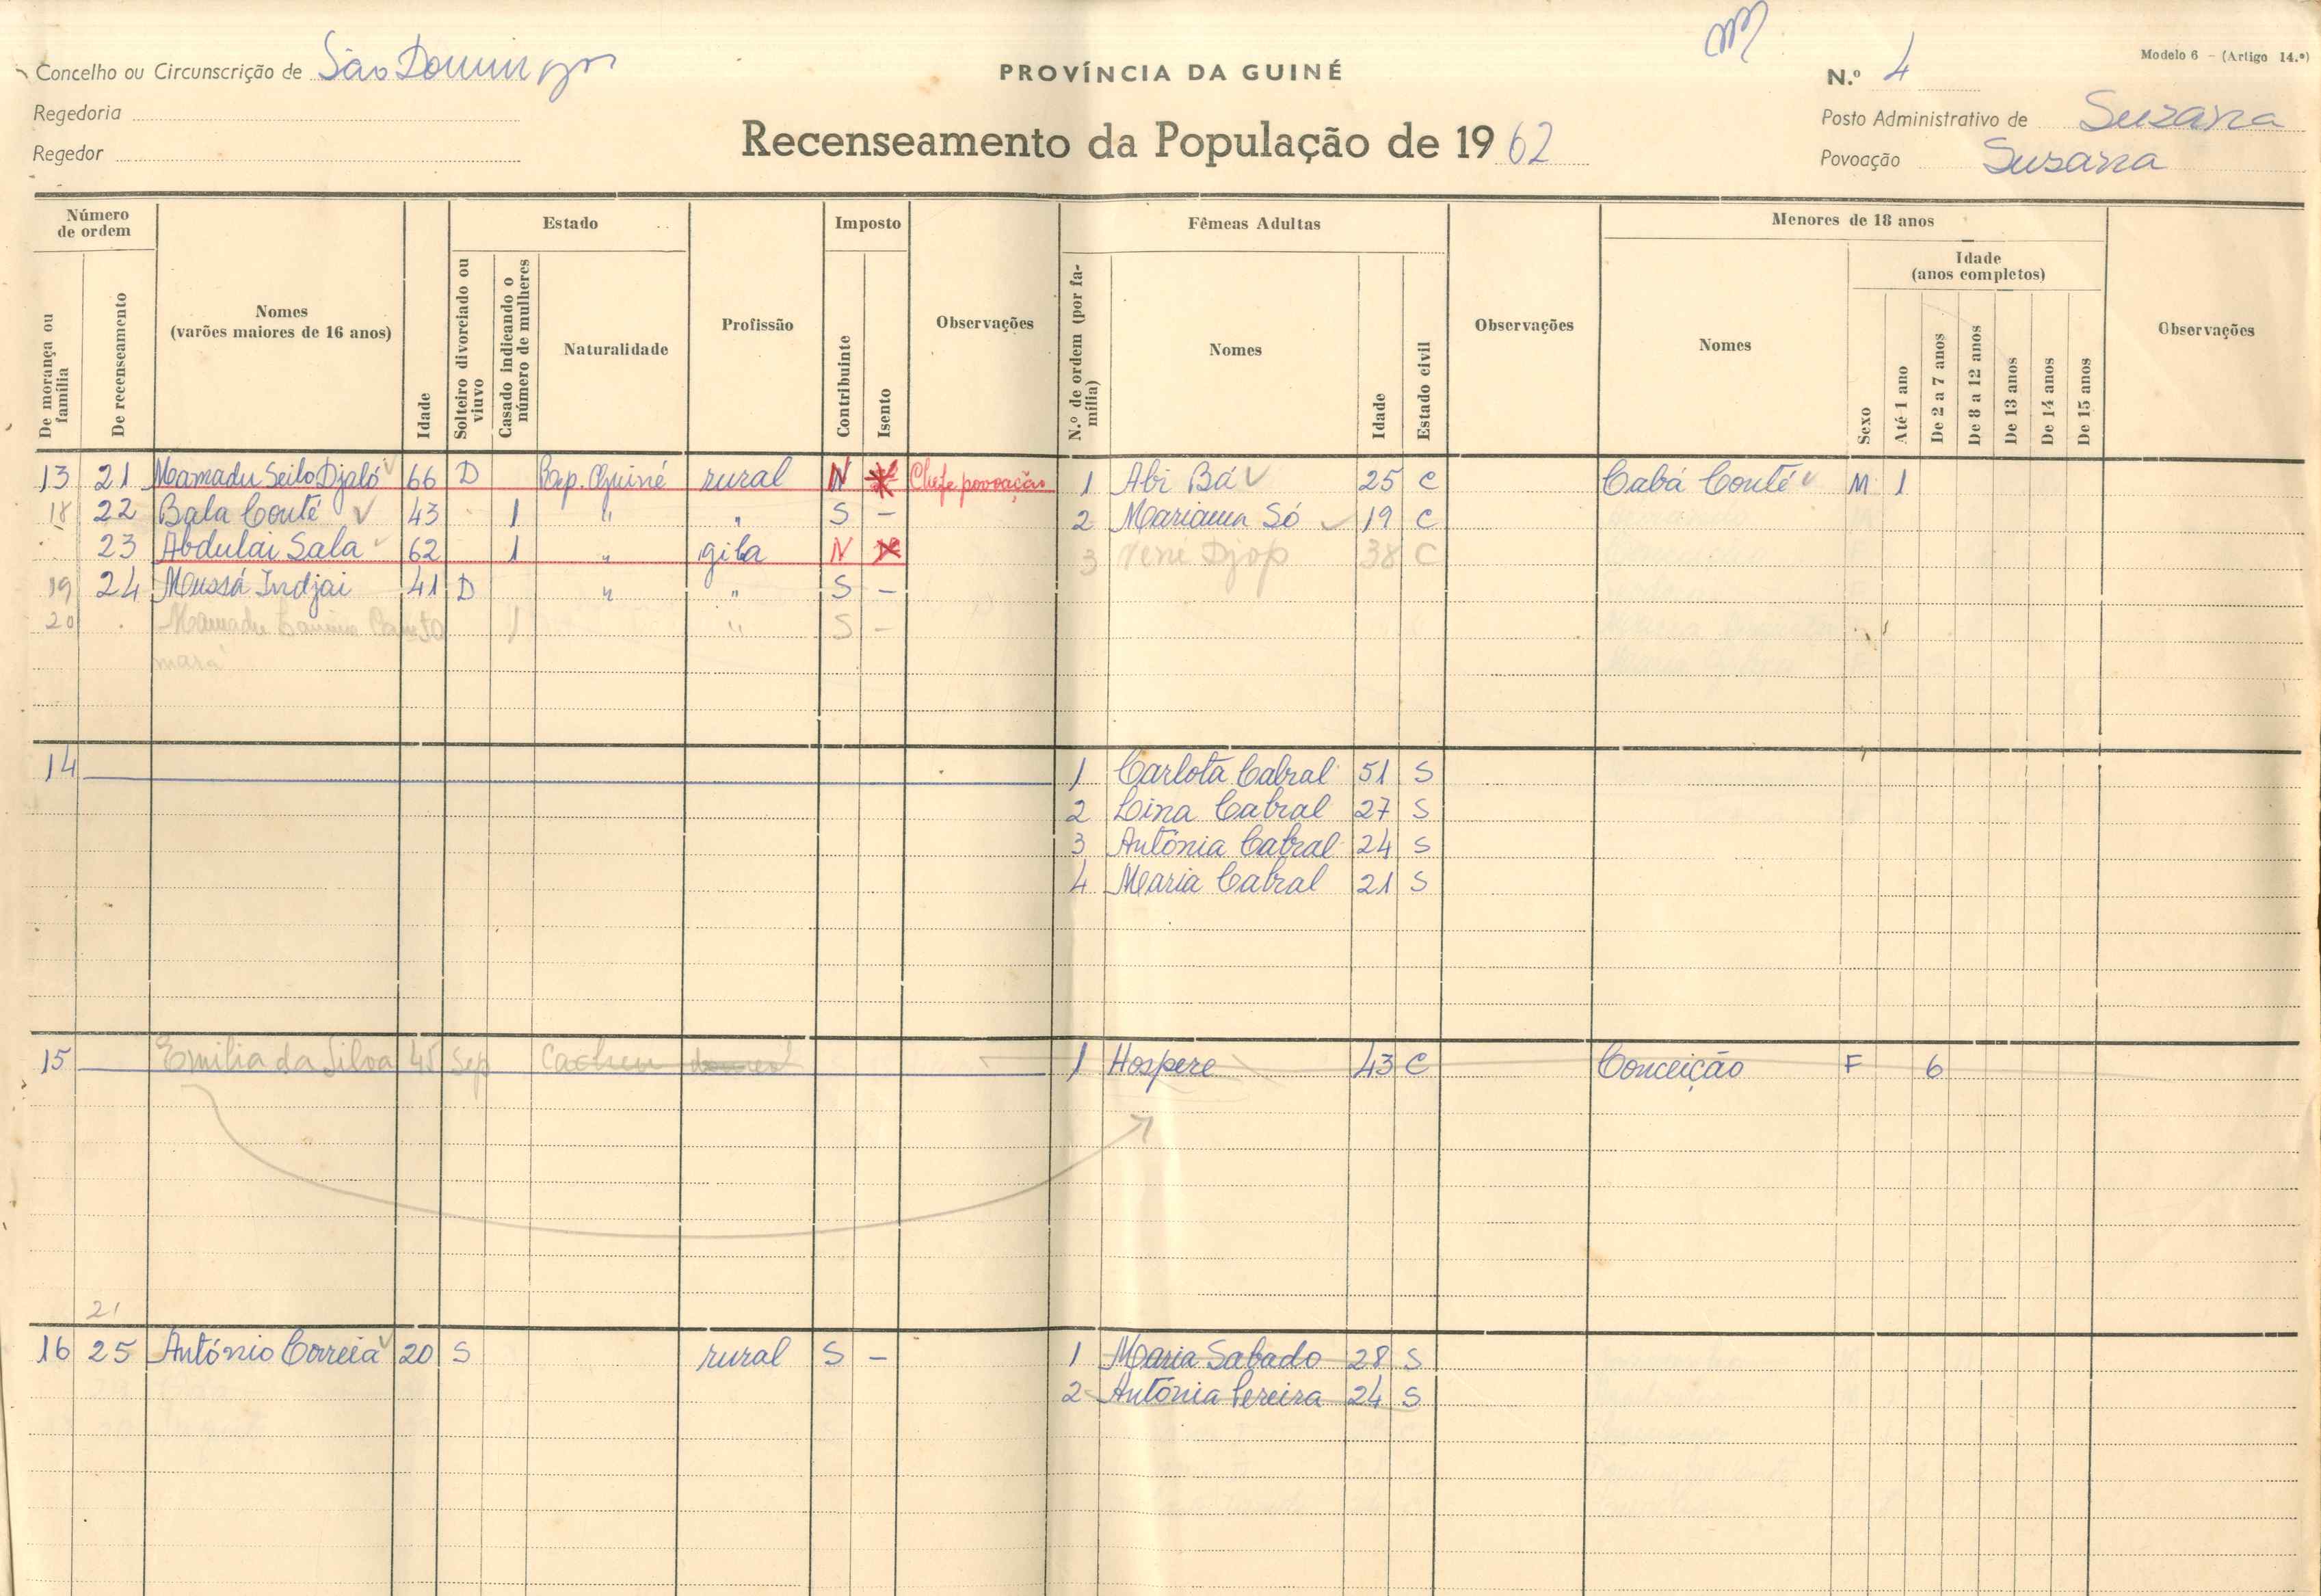 Modelo 6 – (Artigo 14.º)
Concelho ou Circunscrição de São Domingos
PROVÍNCIA DA GUINÉ
N.º 4
Regedoria
Posto Administrativo de Suzana
Regedor
Recenseamento da População de 1962
Povoação Suzana
Número de ordem
Estado
Imposto
Fêmeas Adultas
Menores de 18 anos
Idade (anos completos)
De morança ou família
De recenseamento
Nomes (varões maiores de 16 anos)
Idade
Solteiro divorciado ou viuvo
Casado indicando o número de mulheres
Naturalidade
Profissão
Contribuinte
Isento
Observações
N.º de ordem (por família)
Nomes
Idade
Estado civil
Observações
Nomes
Sexo
Até 1 ano
De 2 a 7 anos
De 8 a 12 anos
De 13 anos
De 14 anos
De 15 anos
Observações
13 21 Mamadu Seilo Djaló 66 D Rep. Guiné rural N Chefe povoação 1 Abi Bá 25 C Cabá Conté M 1
18 22 Bala Conté 43 1 " " S – 2 Mariama Só 19 C
23 Abdulai Sala 62 1 " gila N 3 Nené Djop 38 C
19 24 Mussá Indjai 41 D " " S –
20 Mamadu 1 " S –
mará
14 1 Carlota Cabral 51 S
2 Lina Cabral 27 S
3 Antónia Cabral 24 S
4 Maria Cabral 21 S
15 Emilia da Silva 45 Sep Cacheu 1 Hospere 43 C Conceição F 6
21
16 25 António Correia 20 S rural S – 1 Maria Sabado 28 S
2 Antónia Pereira 24 S